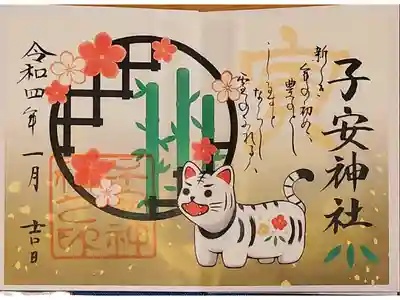 子安神社
新しき
年の初めに
豊のとし
しるすと
ならし
雪のふれるは
安
令和四年 一月 吉日